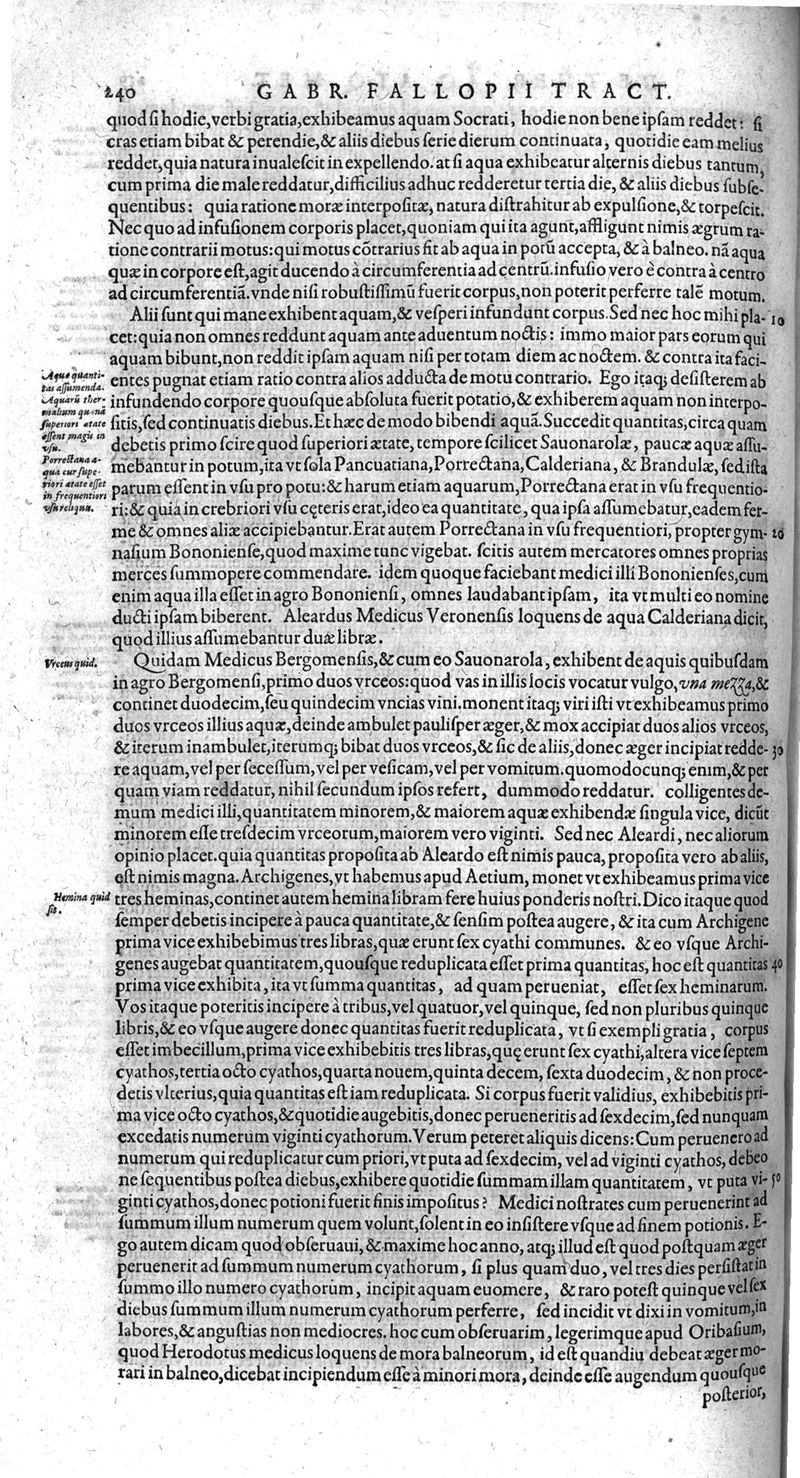 240 GABR. FALLOPII TRACT.
quod si hodie, verbi gratia, exhibeamus aquam Socrati, hodie non bene ipsam reddet: si
cras etiam bibat & perendie, & aliis diebus serie dierum continuata, quotidie eam melius
reddet, quia natura inualescit in expellendo. at si aqua exhibeatur alternis diebus tantum,
cum prima die male reddatur, difficilius adhuc redderetur tertia die, & aliis diebus subse-
quentibus: quia ratione moræ interpositæ, natura distrahitur ab expulsione, & torpescit.
Nec quo ad infusionem corporis placet, quoniam qui ita agunt, affligunt nimis ægrum ra-
tione contrarii motus: qui motus cõtrarius fit ab aqua in potũ accepta, & à balneo. nã aqua
quæ in corpore est, agit ducendo à circumferentia ad centrũ. infusio vero è contra à centro
ad circumferentiã. vnde nisi robustissimũ fuerit corpus, non poterit perferre talẽ motum.
Alii sunt qui mane exhibent aquam, & vesperi infundunt corpus. Sed nec hoc mihi pla- 10
cet: quia non omnes reddunt aquam ante aduentum noctis: immo maior pars eorum qui
aquam bibunt, non reddit ipsam aquam nisi per totam diem ac noctem. & contra ita faci-
Aquæ quanti-
tas assumenda.
Aquarũ ther-
malium quænã
superiori ætate
essent magis in
vsu.
Porrectana a-
qua cur supe-
riori ætate esset
in frequentiori
vsu reliquis.
entes pugnat etiam ratio contra alios adducta de motu contrario. Ego itaq; desisterem ab
infundendo corpore quousque absoluta fuerit potatio, & exhiberem aquam non interpo-
sitis, sed continuatis diebus. Et hæc de modo bibendi aquã. Succedit quantitas, circa quam
debetis primo scire quod superiori ætate, tempore scilicet Sauonarolæ, paucæ aquæ assu-
mebantur in potum, ita vt sola Pancuatiana, Porrectana, Calderiana, & Brandulæ, sed ista
parum essent in vsu pro potu: & harum etiam aquarum, Porrectana erat in vsu frequentio-
ri: & quia in crebriori vsu cęteris erat, ideo ea quantitate, qua ipsa assumebatur, eadem fer-
me & omnes aliæ accipiebantur. Erat autem Porrectana in vsu frequentiori, propter gym- 20
nasium Bononiense, quod maxime tunc vigebat. scitis autem mercatores omnes proprias
merces summopere commendare. idem quoque faciebant medici illi Bononienses, cum
enim aqua illa esset in agro Bononiensi, omnes laudabant ipsam, ita vt multi eo nomine
ducti ipsam biberent. Aleardus Medicus Veronensis loquens de aqua Calderiana dicit,
quod illius assumebantur duæ libræ.
Vrceus quid.
Quidam Medicus Bergomensis, & cum eo Sauonarola, exhibent de aquis quibusdam
in agro Bergomensi, primo duos vrceos: quod vas in illis locis vocatur vulgo, vna mezza, &
continet duodecim, seu quindecim vncias vini. monent itaq; viri isti vt exhibeamus primo
duos vrceos illius aquæ, deinde ambulet paulisper æger, & mox accipiat duos alios vrceos,
& iterum inambulet, iterumq; bibat duos vrceos, & sic de aliis, donec æger incipiat redde- 30
re aquam, vel per secessum, vel per vesicam, vel per vomitum. quomodocunq; enim, & per
quam viam reddatur, nihil secundum ipsos refert, dummodo reddatur. colligentes de-
mum medici illi, quantitatem minorem, & maiorem aquæ exhibendæ singula vice, dicũt
minorem esse tresdecim vrceorum, maiorem vero viginti. Sed nec Aleardi, nec aliorum
opinio placet. quia quantitas proposita ab Aleardo est nimis pauca, proposita vero ab aliis,
est nimis magna. Archigenes, vt habemus apud Aetium, monet vt exhibeamus prima vice
Hemina quid
sit.
tres heminas, continet autem hemina libram fere huius ponderis nostri. Dico itaque quod
semper debetis incipere à pauca quantitate, & sensim postea augere, & ita cum Archigene
prima vice exhibebimus tres libras, quæ erunt sex cyathi communes. & eo vsque Archi-
genes augebat quantitatem, quousque reduplicata esset prima quantitas, hoc est quantitas 40
prima vice exhibita, ita vt summa quantitas, ad quam perueniat, esset sex heminarum.
Vos itaque poteritis incipere à tribus, vel quatuor, vel quinque, sed non pluribus quinque
libris, & eo vsque augere donec quantitas fuerit reduplicata, vt si exempli gratia, corpus
esset imbecillum, prima vice exhibebitis tres libras, quę erunt sex cyathi, altera vice septem
cyathos, tertia octo cyathos, quarta nouem, quinta decem, sexta duodecim, & non proce-
detis vlterius, quia quantitas est iam reduplicata. Si corpus fuerit validius, exhibebitis pri-
ma vice octo cyathos, & quotidie augebitis, donec perueneritis ad sexdecim, sed nunquam
excedatis numerum viginti cyathorum. Verum peteret aliquis dicens: Cum peruenero ad
numerum qui reduplicatur cum priori, vt puta ad sexdecim, vel ad viginti cyathos, debeo
ne sequentibus postea diebus, exhibere quotidie summam illam quantitatem, vt puta vi- 50
ginti cyathos, donec potioni fuerit finis impositus? Medici nostrates cum peruenerint ad
summum illum numerum quem volunt, solent in eo insistere vsque ad finem potionis. E-
go autem dicam quod obseruaui, & maxime hoc anno, atq; illud est quod postquam æger
peruenerit ad summum numerum cyathorum, si plus quam duo, vel tres dies persistat in
summo illo numero cyathorum, incipit aquam euomere, & raro potest quinque vel sex
diebus summum illum numerum cyathorum perferre, sed incidit vt dixi in vomitum, in
labores, & angustias non mediocres. hoc cum obseruarim, legerimque apud Oribasium,
quod Herodotus medicus loquens de mora balneorum, id est quandiu debeat æger mo-
rari in balneo, dicebat incipiendum esse à minori mora, deinde esse augendum quousque
posterior,